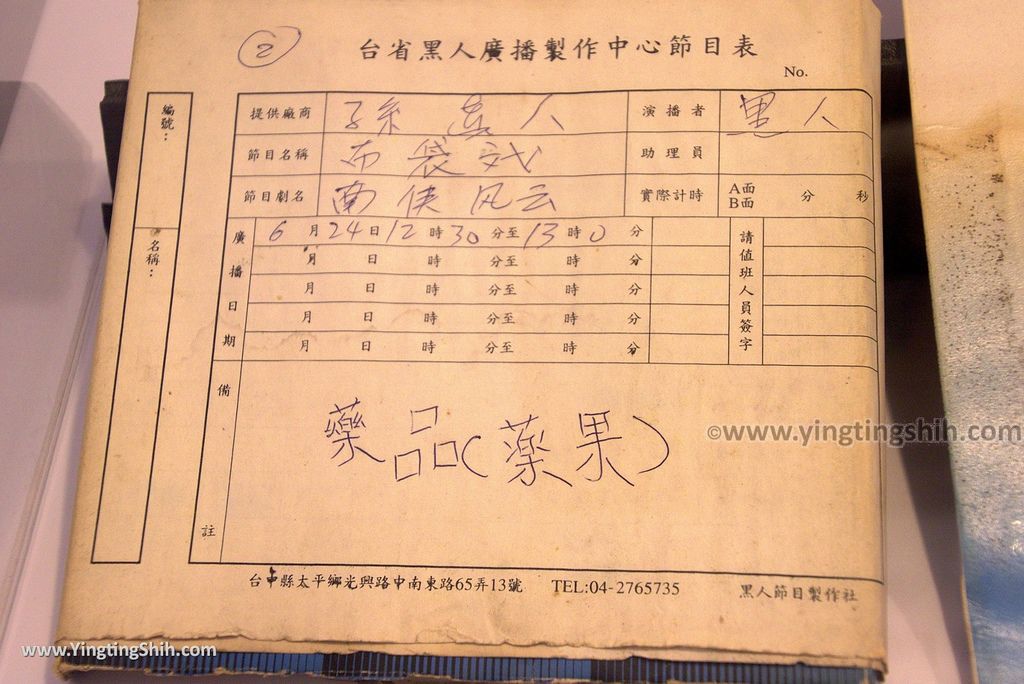 ② 台省黑人廣播製作中心節目表
No.
編號：
名稱：
提供廠商 孫真人 演播者 黑人
節目名稱 布袋戏 助理員
節目劇名 南俠风云 實際計時 A面 B面 分 秒
廣播日期 6月24日12時30分至13時0分 請值班人員簽字
月 日 時 分至 時 分
月 日 時 分至 時 分
月 日 時 分至 時 分
月 日 時 分至 時 分
備註
藥品(薬果)
©www.yingtingshih.com
台中縣太平鄉光興路中南東路65弄13號 TEL:04-2765735 黑人節目製作社
www.YingtingShih.com